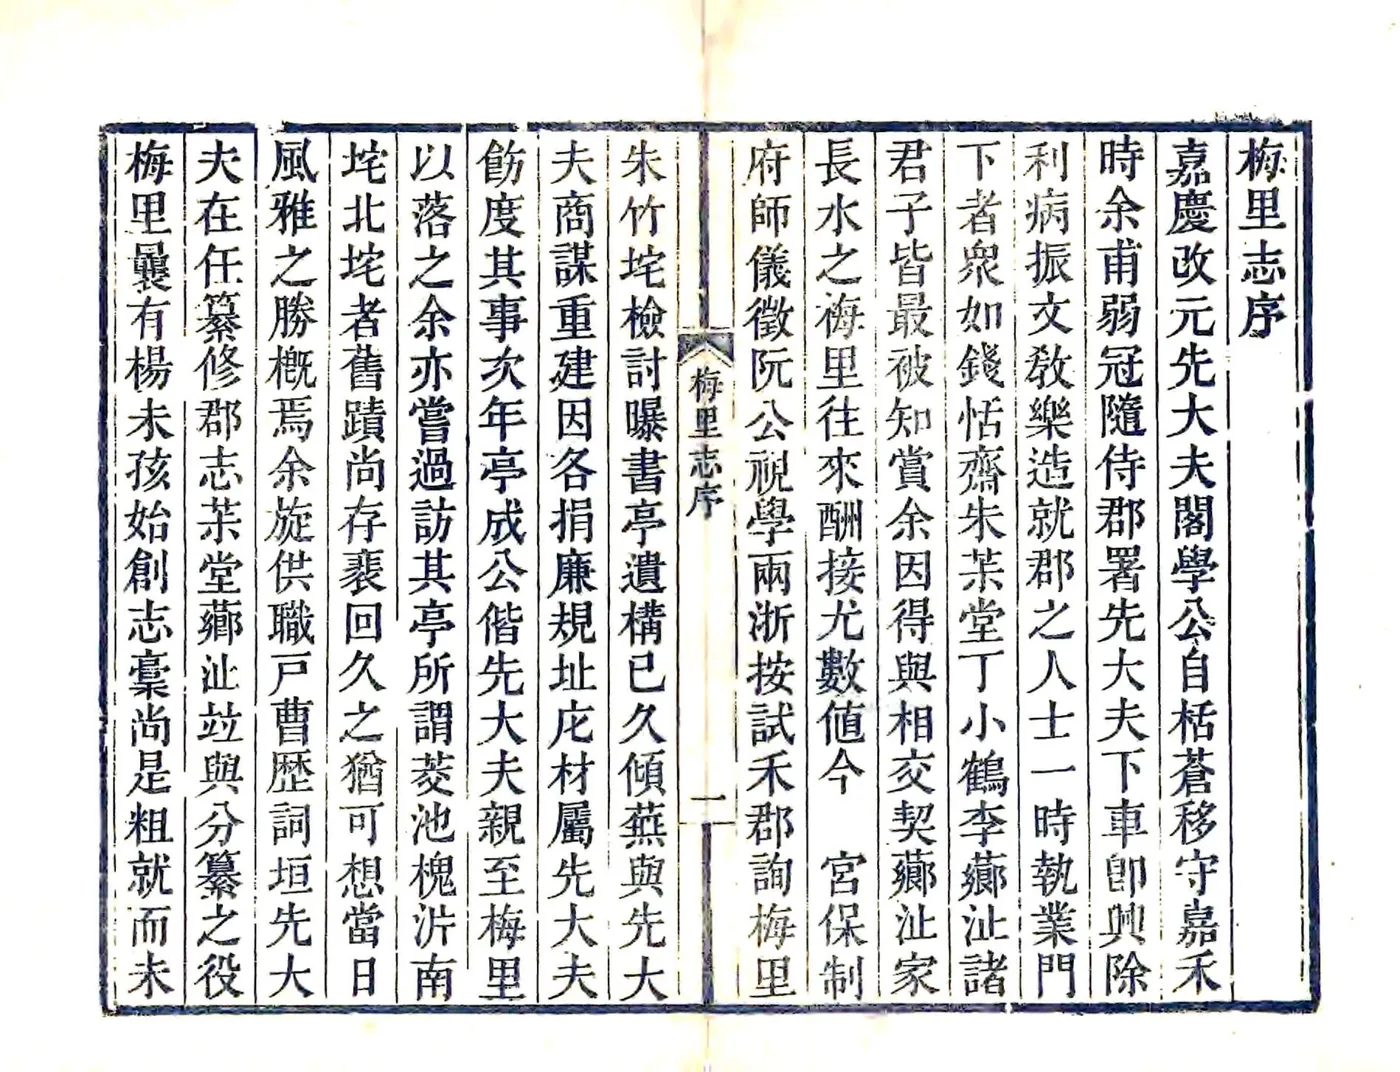 梅里志序
嘉慶改元先大夫閣學公自栝蒼移守嘉禾
時余甫弱冠隨侍郡署先大夫下車卽興除
利病振文敎樂造就郡之人士一時執業門
下者衆如錢恬齋朱茮堂丁小鶴李薌沚諸
君子皆最被知賞余因得與相交契薌沚家
長水之梅里往來酬接尤數値今　宮保制
府師儀徵阮公視學兩浙按試禾郡詢梅里
梅里志序
一
朱竹垞檢討曝書亭遺構已久傾蕪與先大
夫商謀重建因各捐廉規址庀材屬先大夫
飭度其事次年亭成公偕先大夫親至梅里
以落之余亦嘗過訪其亭所謂菱池槐沜南
垞北垞者舊蹟尚存裴回久之猶可想當日
風雅之勝概焉余旋供職戸曹歴詞垣先大
夫在任纂修郡志茮堂薌沚竝與分纂之役
梅里曩有楊未孩始創志稾尚是粗就而未